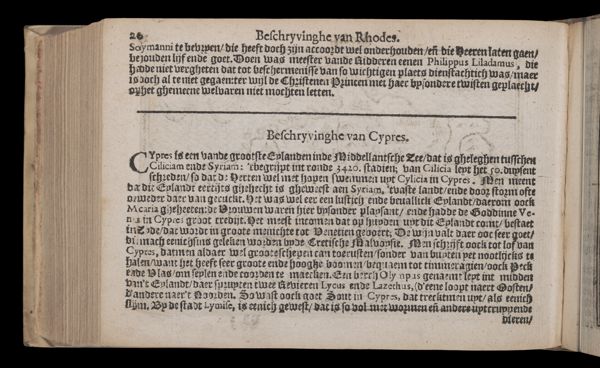 26 Beschryvinghe van Rhodes.
Solymanni te bevrijen/ die heeft doch zijn accoordt wel onderhouden/ eñ die Heeren laten gaen/
behouden lijf ende goet. Doen was meester vande Ridderen eenen Philippus Liladamus, die
hadde niet vergheten dat tot beschermenisse van so wichtigen plaets dienstachtich was/ maer
is doch al te niet gegaen: ter wijl de Christenen Princen met haer bysondere twisten geplaecht/
op het ghemeene welvaren niet mochten letten.
Beschryvinghe van Cypres.
CYpres is een vande grootste Eylanden inde Middellantsche Zee/ dat is gheleghen tusschen
Ciliciam ende Syriam: 'tbegrijpt int ronde 3420. stadien; van Cilicia leyt het 50. duysent
schreden/ so dat de Herten wel met hopen swemmen uyt Cylicia in Cypres. Men meent
dat dit Eylandt eertijts ghehecht is gheweest aen Syriam, 'tvaste landt/ ende door storm ofte
onweder daer van geruckt. Het was wel eer een lustich ende bevallick Eylandt/ daerom oock
Macaria gheheeten: de Vrouwen waren hier bysonder playsant/ ende hadde de Goddinne Ve-
nus in Cypres groot credijt. Het meest incomen dat op huyden uyt dit Eylandt comt/ bestaet
in Zijde/ dat wordt in groote menichte tot Venetien gevoert; De wijn valt daer oock seer goet/
die mach eenichsins geleken worden byde Cretische Malvoysie. Men schrijft oock tot lof van
Cypres, dat men aldaer wel groote schepen can toerusten/ sonder van buyten yet nootlijcks te
halen/ want het heeft seer groote ende hooghe boomen/ bequaem tot timmeragien/ oock Peck
ende Vlas/ om seylen ende coorden te maecken. Een berch Olympus genaemt leyt int midden
van't Eylandt/ daer spruyten twee Revieren Lycus ende Lazethus, d'eene loopt naert Oosten/
d'andere naer't Noorden. So wast oock goet Sout in Cypres, dat treckt men uyt/ als eenich
slijm. By de stadt Lymisse, is eenich gewest/ dat is so vol met wormen eñ andere uytcruypende
dieren/